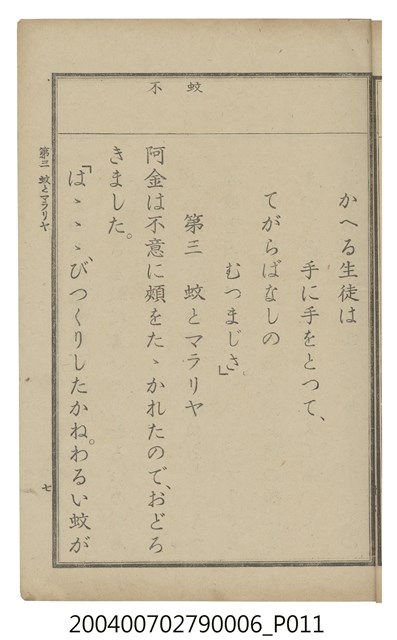 蚊　不
かへる生徒は
手に手をとつて、
てがらばなしの
むつまじき。」
第三　蚊とマラリヤ
阿金は不意に頰をたゝかれたので、おどろ
きました。
「はゝゝゝびつくりしたかね。わるい蚊が
第三　蚊とマラリヤ
七
200400702790006_P011